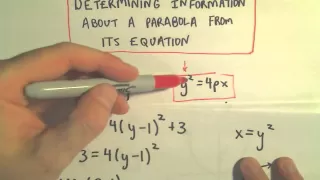 DETERMINING INFORMATION
ABOUT A PARABOLA FROM
ITS EQUATION
y² = 4px
4(y-1)² + 3
x = y²
3 = 4(y-1)²